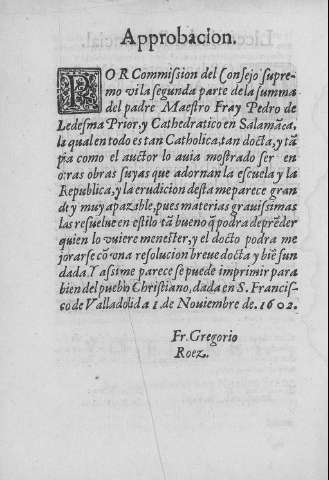 Approbacion.
POR Commission del Consejo supre-
mo vi la segunda parte de la summa
del padre Maestro Fray Pedro de
Ledesma Prior, y Cathedratico en Salamãca,
la qual en todo es tan Catholica, tan docta, y tã
pia como el auctor lo auia mostrado ser en
otras obras suyas que adornan la escuela y la
Republica, y la erudicion desta me parece gran
de y muy apazible, pues materias grauissimas
las resuelue en estilo tã bueno q̃ podra deprẽder
quien lo vuiere menester, y el docto podra me
jorarse cõ vna resolucion breue docta y biẽ fun
dada. Y assi me parece se puede imprimir para
bien del pueblo Christiano, dada en S. Francis-
co de Valladolid a 1. de Nouiembre de. 1602.
Fr. Gregorio
Roez.